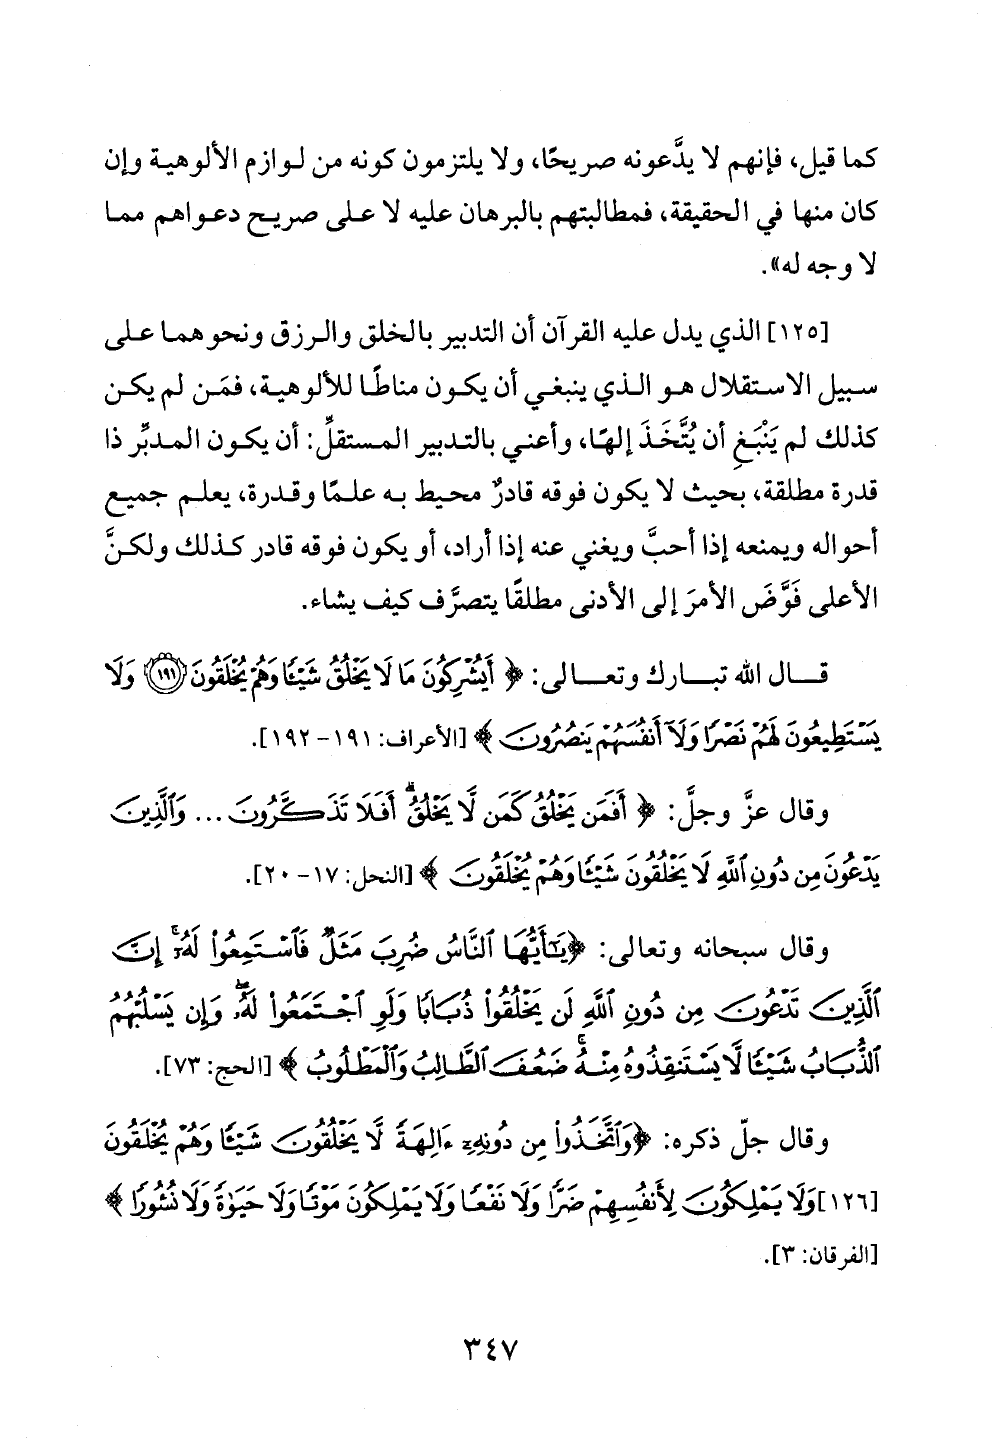 كما قيل، فإنهم لا يدَّعونه صريحًا، ولا يلتزمون كونه من لوازم الألوهية وإن
كان منها في الحقيقة، فمطالبتهم بالبرهان عليه لا على صريح دعواهم مما
لا وجه له».
[١٢٥] الذي يدل عليه القرآن أن التدبير بالخلق والرزق ونحوهما على
سبيل الاستقلال هو الذي ينبغي أن يكون مناطًا للألوهية، فمَن لم يكن
كذلك لم يَنْبَغِ أن يُتَّخَذَ إلهًا، وأعني بالتدبير المستقلِّ: أن يكون المدبِّر ذا
قدرة مطلقة، بحيث لا يكون فوقه قادرٌ محيط به علمًا وقدرة، يعلم جميع
أحواله ويمنعه إذا أحبَّ ويغني عنه إذا أراد، أو يكون فوقه قادر كذلك ولكنَّ
الأعلى فَوَّضَ الأمرَ إلى الأدنى مطلقًا يتصرَّف كيف يشاء.
قال الله تبارك وتعالى: ﴿أَيُشْرِكُونَ مَا لَا يَخْلُقُ شَيْئًا وَهُمْ يُخْلَقُونَ ۝١٩١ وَلَا
يَسْتَطِيعُونَ لَهُمْ نَصْرًا وَلَآ أَنفُسَهُمْ يَنصُرُونَ﴾ [الأعراف: ١٩١- ١٩٢].
وقال عزَّ وجلَّ: ﴿أَفَمَن يَخْلُقُ كَمَن لَّا يَخْلُقُ ۗ أَفَلَا تَذَكَّرُونَ ... وَٱلَّذِينَ
يَدْعُونَ مِن دُونِ ٱللَّهِ لَا يَخْلُقُونَ شَيْئًا وَهُمْ يُخْلَقُونَ﴾ [النحل: ١٧- ٢٠].
وقال سبحانه وتعالى: ﴿يَٰٓأَيُّهَا ٱلنَّاسُ ضُرِبَ مَثَلٌ فَٱسْتَمِعُوا۟ لَهُۥٓ ۚ إِنَّ
ٱلَّذِينَ تَدْعُونَ مِن دُونِ ٱللَّهِ لَن يَخْلُقُوا۟ ذُبَابًا وَلَوِ ٱجْتَمَعُوا۟ لَهُۥ ۖ وَإِن يَسْلُبْهُمُ
ٱلذُّبَابُ شَيْئًا لَّا يَسْتَنقِذُوهُ مِنْهُ ۚ ضَعُفَ ٱلطَّالِبُ وَٱلْمَطْلُوبُ﴾ [الحج: ٧٣].
وقال جلّ ذكره: ﴿وَٱتَّخَذُوا۟ مِن دُونِهِۦٓ ءَالِهَةً لَّا يَخْلُقُونَ شَيْئًا وَهُمْ يُخْلَقُونَ
[١٢٦] وَلَا يَمْلِكُونَ لِأَنفُسِهِمْ ضَرًّا وَلَا نَفْعًا وَلَا يَمْلِكُونَ مَوْتًا وَلَا حَيَوٰةً وَلَا نُشُورًا﴾
[الفرقان: ٣].
٣٤٧